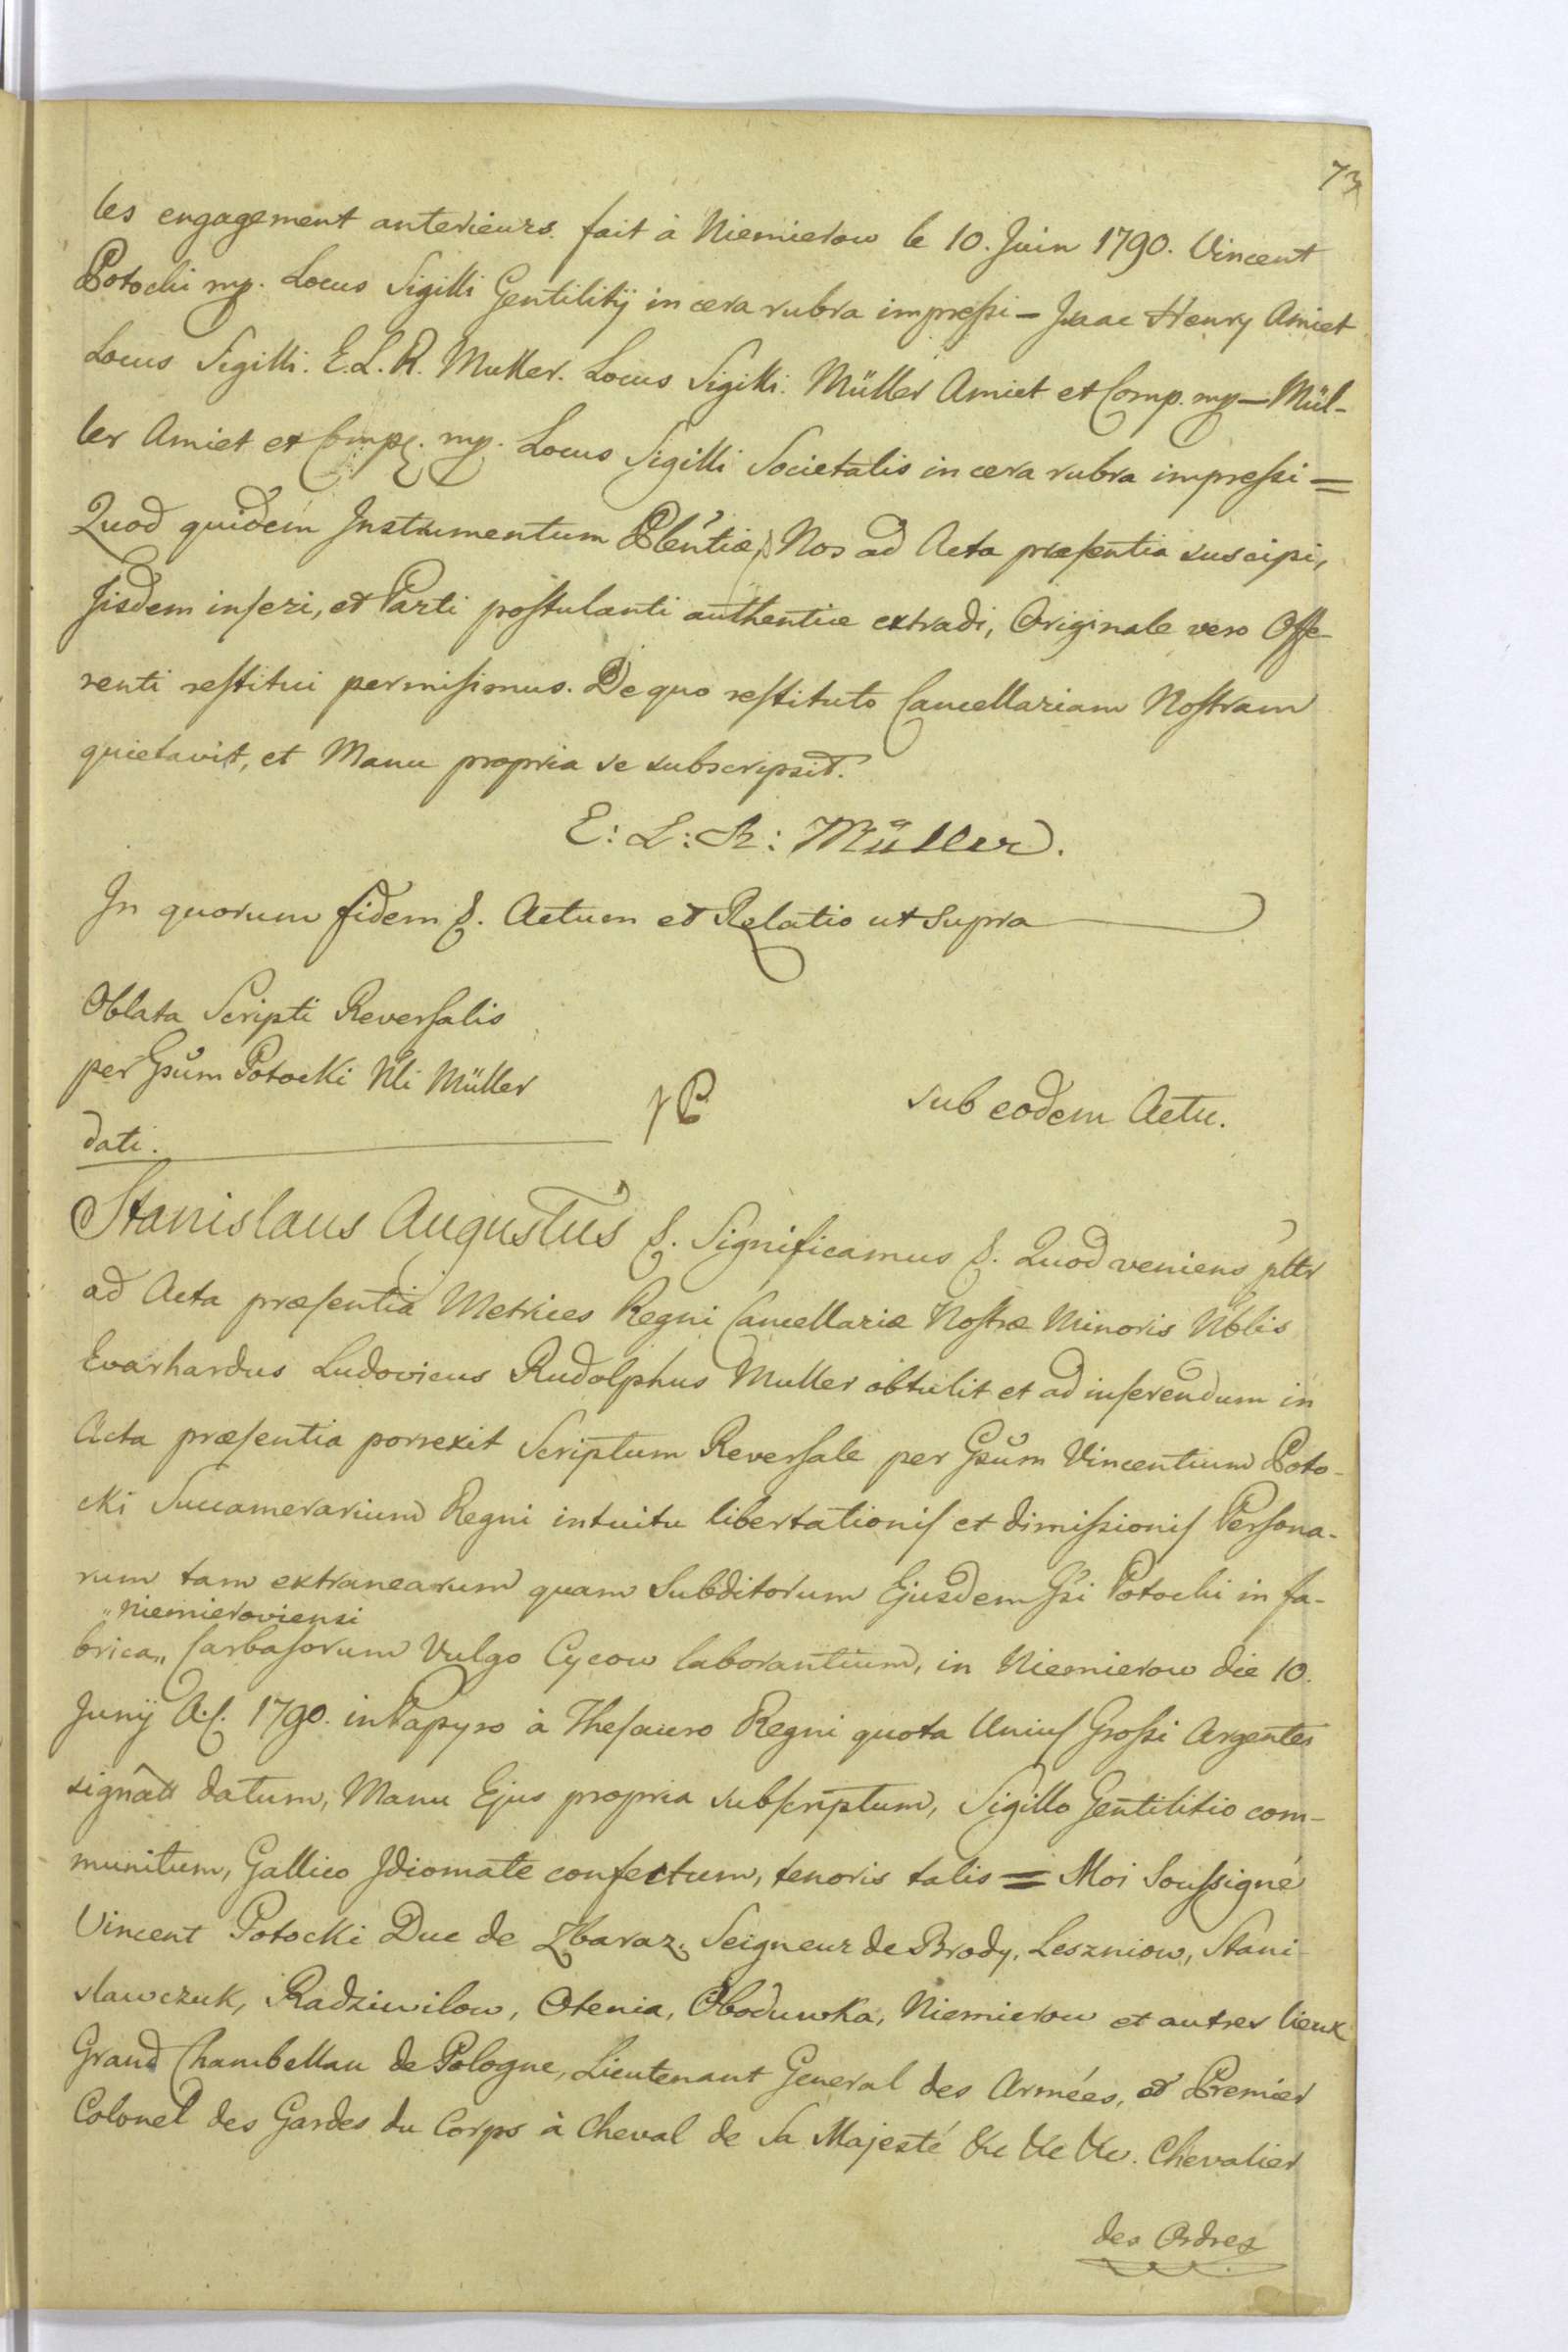 73
les engagement anterieurs. fait à Niemierow le 10. Juin 1790. Vincent
Potocki mp. Locus Sigilli Gentilitij in cera rubra impressi – Isaac Henry Amiet
Locus Sigilli. E. L. R. Muller. Locus Sigilli. Müller Amiet et Comp. mp – Mül-
ler Amiet et Comp. mp. Locus Sigilli Societatis in cera rubra impressi =
Quod quidem Instrumentum Nos ad Acta præsentia suscipi,
Iisdem inseri, et Parti postulanti authentice extradi, Originale vero Offe-
renti restitui permisimus. De quo restituto Cancellariam Nostram
quietavit, et Manu propria se subscripsit.
E: L: R: Müller.
In quorum fidem &. Actum et Relatio ut supra
Oblata Scripti Reversalis
per Gsum Potocki Nli Müller
dati.
sub eodem Actu.
Stanislaus Augustus &. Significamus &. Quod veniens pltr
ad Acta præsentia Metrices Regni Cancellariæ Nostræ Minoris Nblis
Evarhardus Ludovicus Rudolphus Muller obtulit et ad inserendum in
Acta præsentia porrexit Scriptum Reversale per Gsum Vincentium Poto-
cki Succamerarium Regni intuitu libertationis et dimissionis Persona-
rum tam extranearum quam Subditorum Ejusdem Gsi Potocki in fa-
"Niemieroviensi
brica" Carbasorum Vulgo Cycow laborantium, in Niemierow die 10.
Junij A. c. 1790. in Papyro à Thesauro Regni quota Unius Grossi Argentei
signatt datum, Manu Ejus propria subscriptum, Sigillo Gentilitio com-
munitum, Gallico Idiomate confectum, tenoris talis = Moi Soussigné
Vincent Potocki Duc de Zbaraz, Seigneur de Brody, Leszniow, Stani-
slawczuk, Radziwilow, Otenia, Oboduwka, Niemierow et autres lieux
Grand Chambellan de Pologne, Lieutenant General des Armées, et Premier
Colonel des Gardes du Corps à Cheval de Sa Majesté &c &c &c. Chevalier
des Ordres